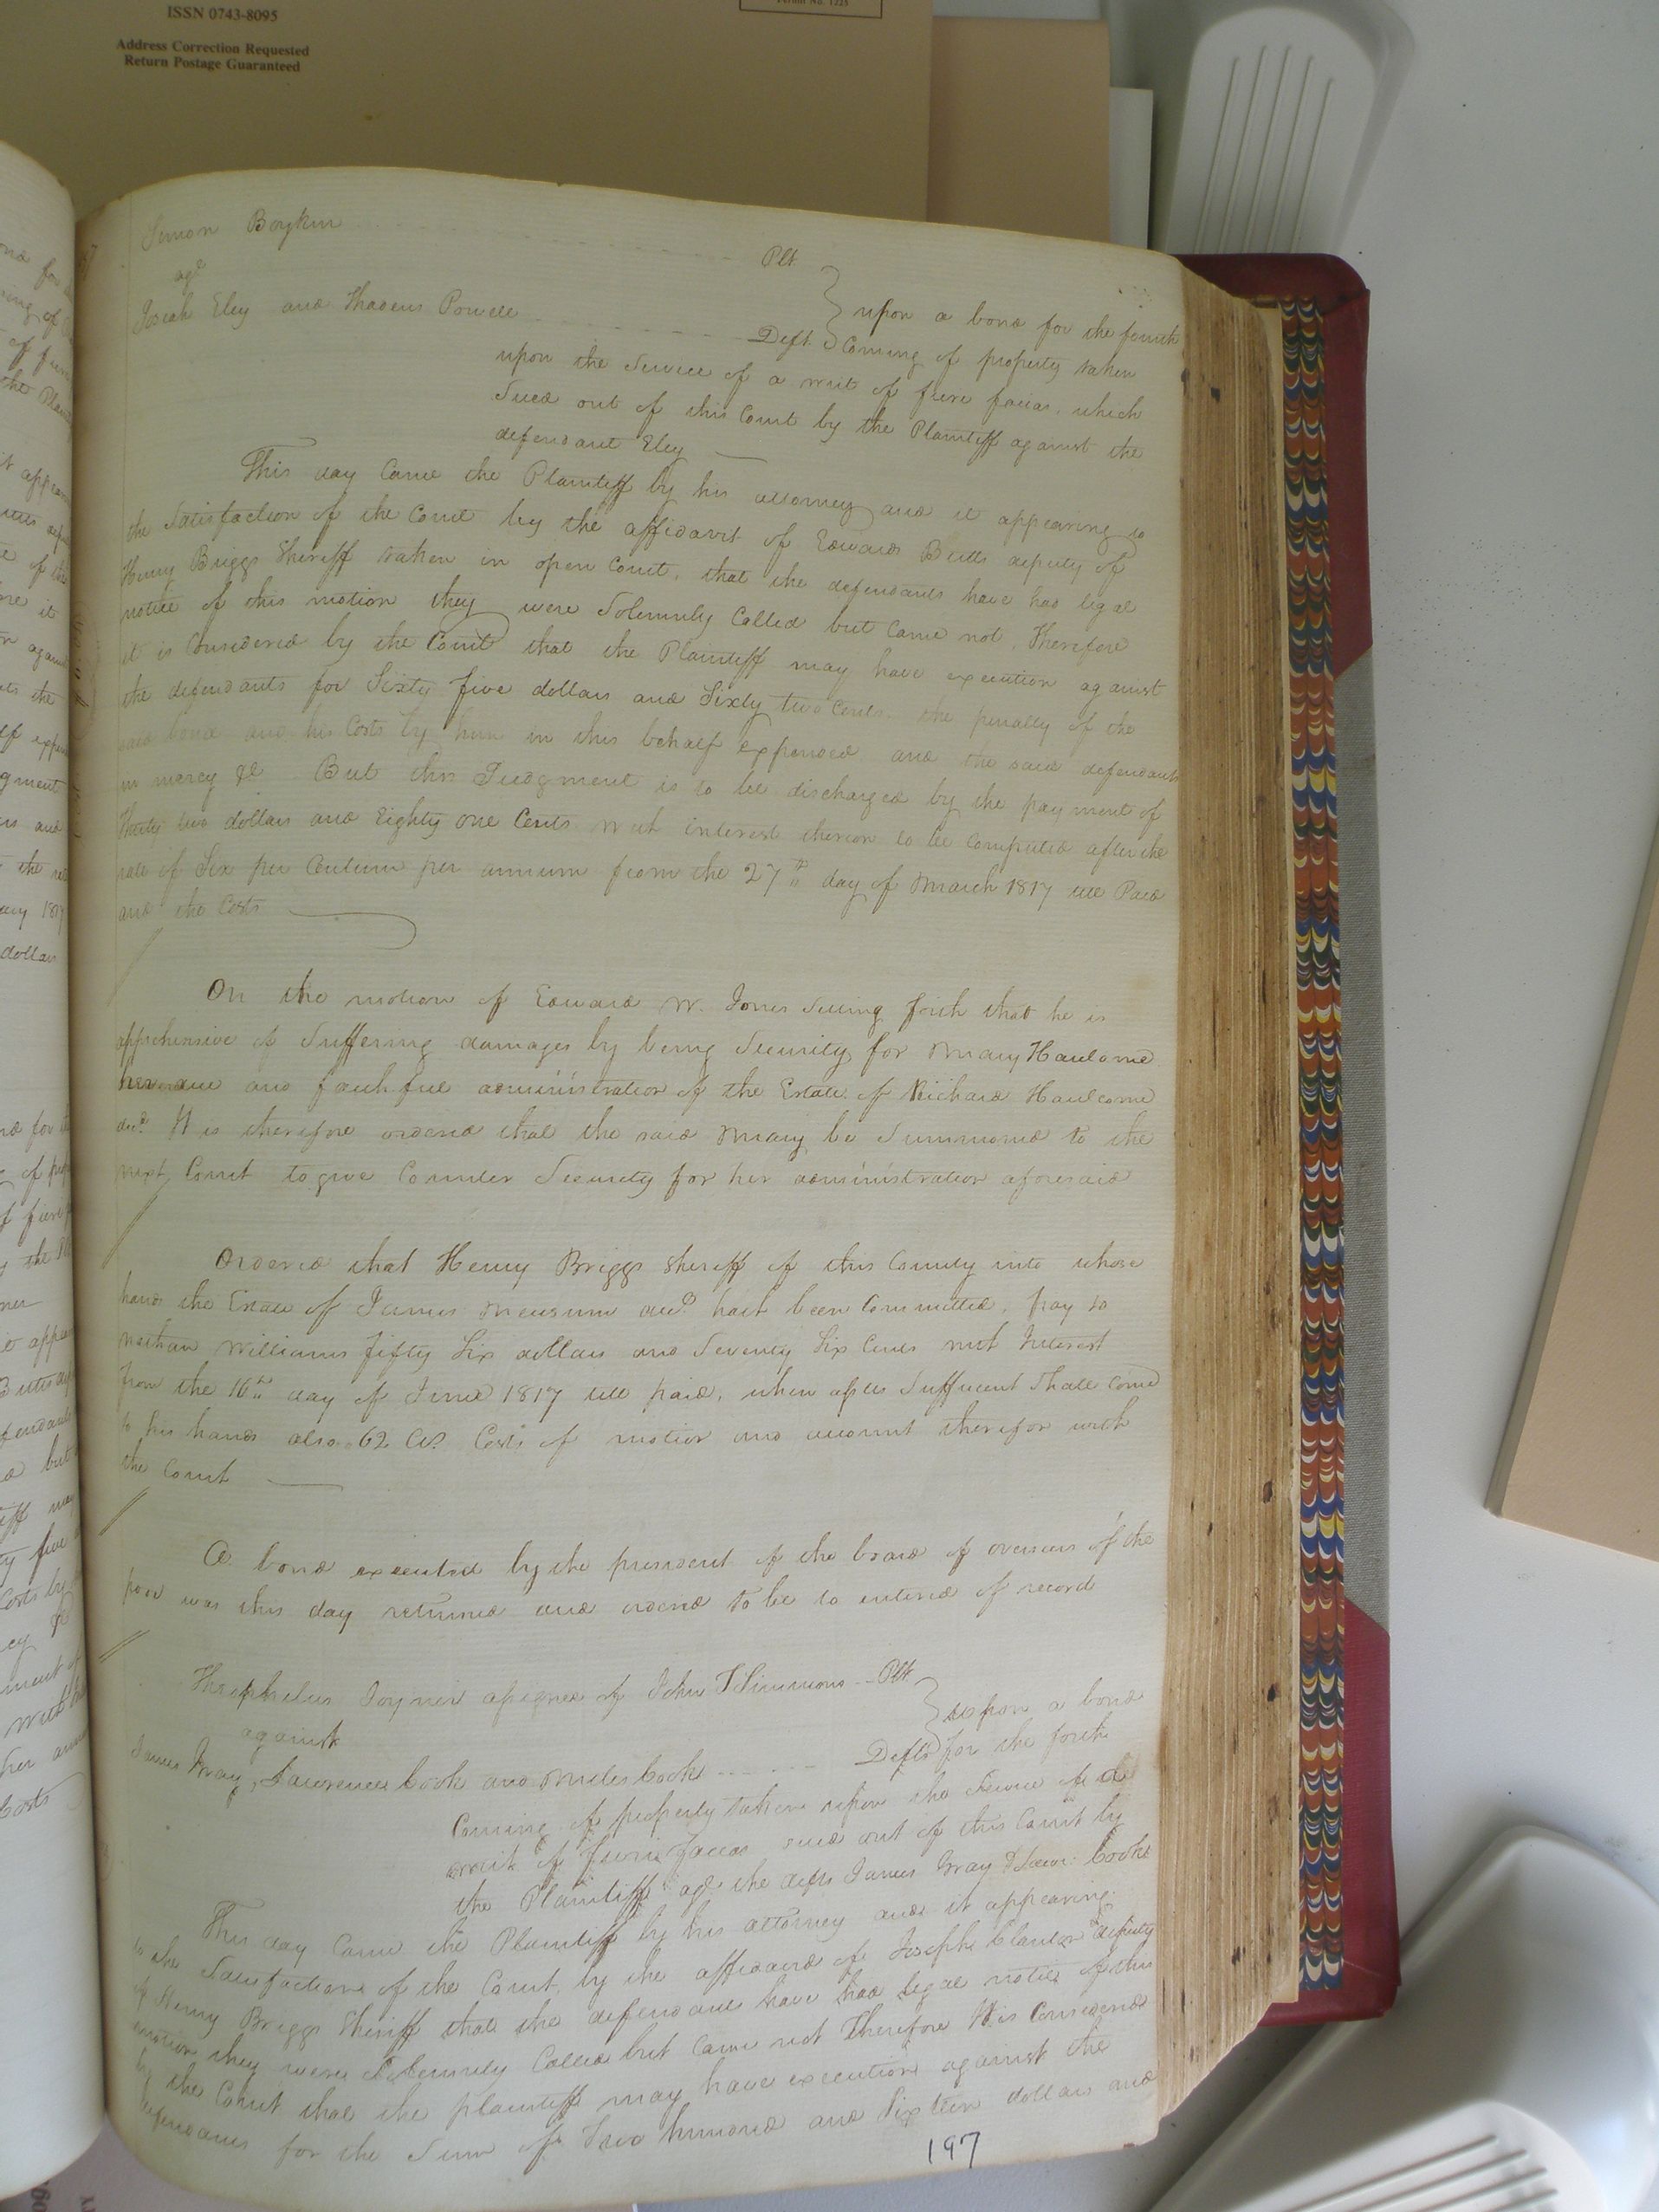 ISSN 0743-8095
Address Correction Requested
Return Postage Guaranteed
Permit No. 1225
Simon Boykin Plt.
agt
Josiah Eley and Thadeus Powell Deft.
upon a bond for the forth
Coming of property taken
upon the Service of a writ of fieri facias, which
Sued out of this Court by the Plaintiff against the
defendant Eley
This day Came the Plaintiff by his attorney and it appearing to
the Satisfaction of the Court by the affidavit of Edward Butts deputy of
Henry Briggs Sheriff taken in open Court, that the defendants have had legal
notice of this motion they were Solemnly Called but Came not, Therefore
it is Considered by the Court that the Plaintiff may have execution against
the defendants for Sixty five dollars and Sixty two Cents the penalty of the
said bond and his Costs by him in this behalf expended and the said defendants
in mercy &c But this Judgment is to be discharged by the payment of
thirty two dollars and Eighty one Cents with interest thereon to be Computed after the
rate of Six per Centum per annum from the 27th day of March 1817 till Paid
and the Costs
On the motion of Edward W. Jones Setting forth that he is
apprehensive of Suffering damages by being Security for Mary Haulcome
due and faithful administration of the Estate of Richard Haulcome
decd. It is therefore ordered that the said Mary be Summoned to the
next Court to give Counter Security for her administration aforesaid
Ordered that Henry Briggs Sheriff of this County into whose
hands the Estate of James decd. hath been Committed, pay to
Nathan Williams fifty Six dollars and Seventy Six Cents with Interest
from the 16th day of June 1817 till paid, when assets Sufficient Shall Come
to his hands also 62 Cts. Costs of motion and account therefor with
the Court
A bond executed by the president of the board of overseers of the
poor was this day returned and ordered to be so entered of record
Theophelus Joyner assignee of John T Simmons Plt.
against
James Gray, Lawrence Cook and Miles Cook Defts
upon a bond
for the forth
Coming of property taken upon the Service of a
writ of fieri facias sued out of this Court by
the Plaintiff agt. the defts James Gray & Lawr. Cook
This day Came the Plaintiff by his attorney and it appearing
to the Satisfaction of the Court, by the affidavit of Joseph Claud deputy
of Henry Briggs Sheriff that the defendants have had legal notice of this
motion they were Solemnly Called but Came not Therefore It is Considered
by the Court that the plaintiff may have execution against the
defendants for the Sum of Two hundred and Sixteen dollars and
197